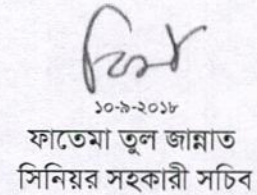 ১০-৯-২০১৮
ফাতেমা তুল জান্নাত
সিনিয়র সহকারী সচিব